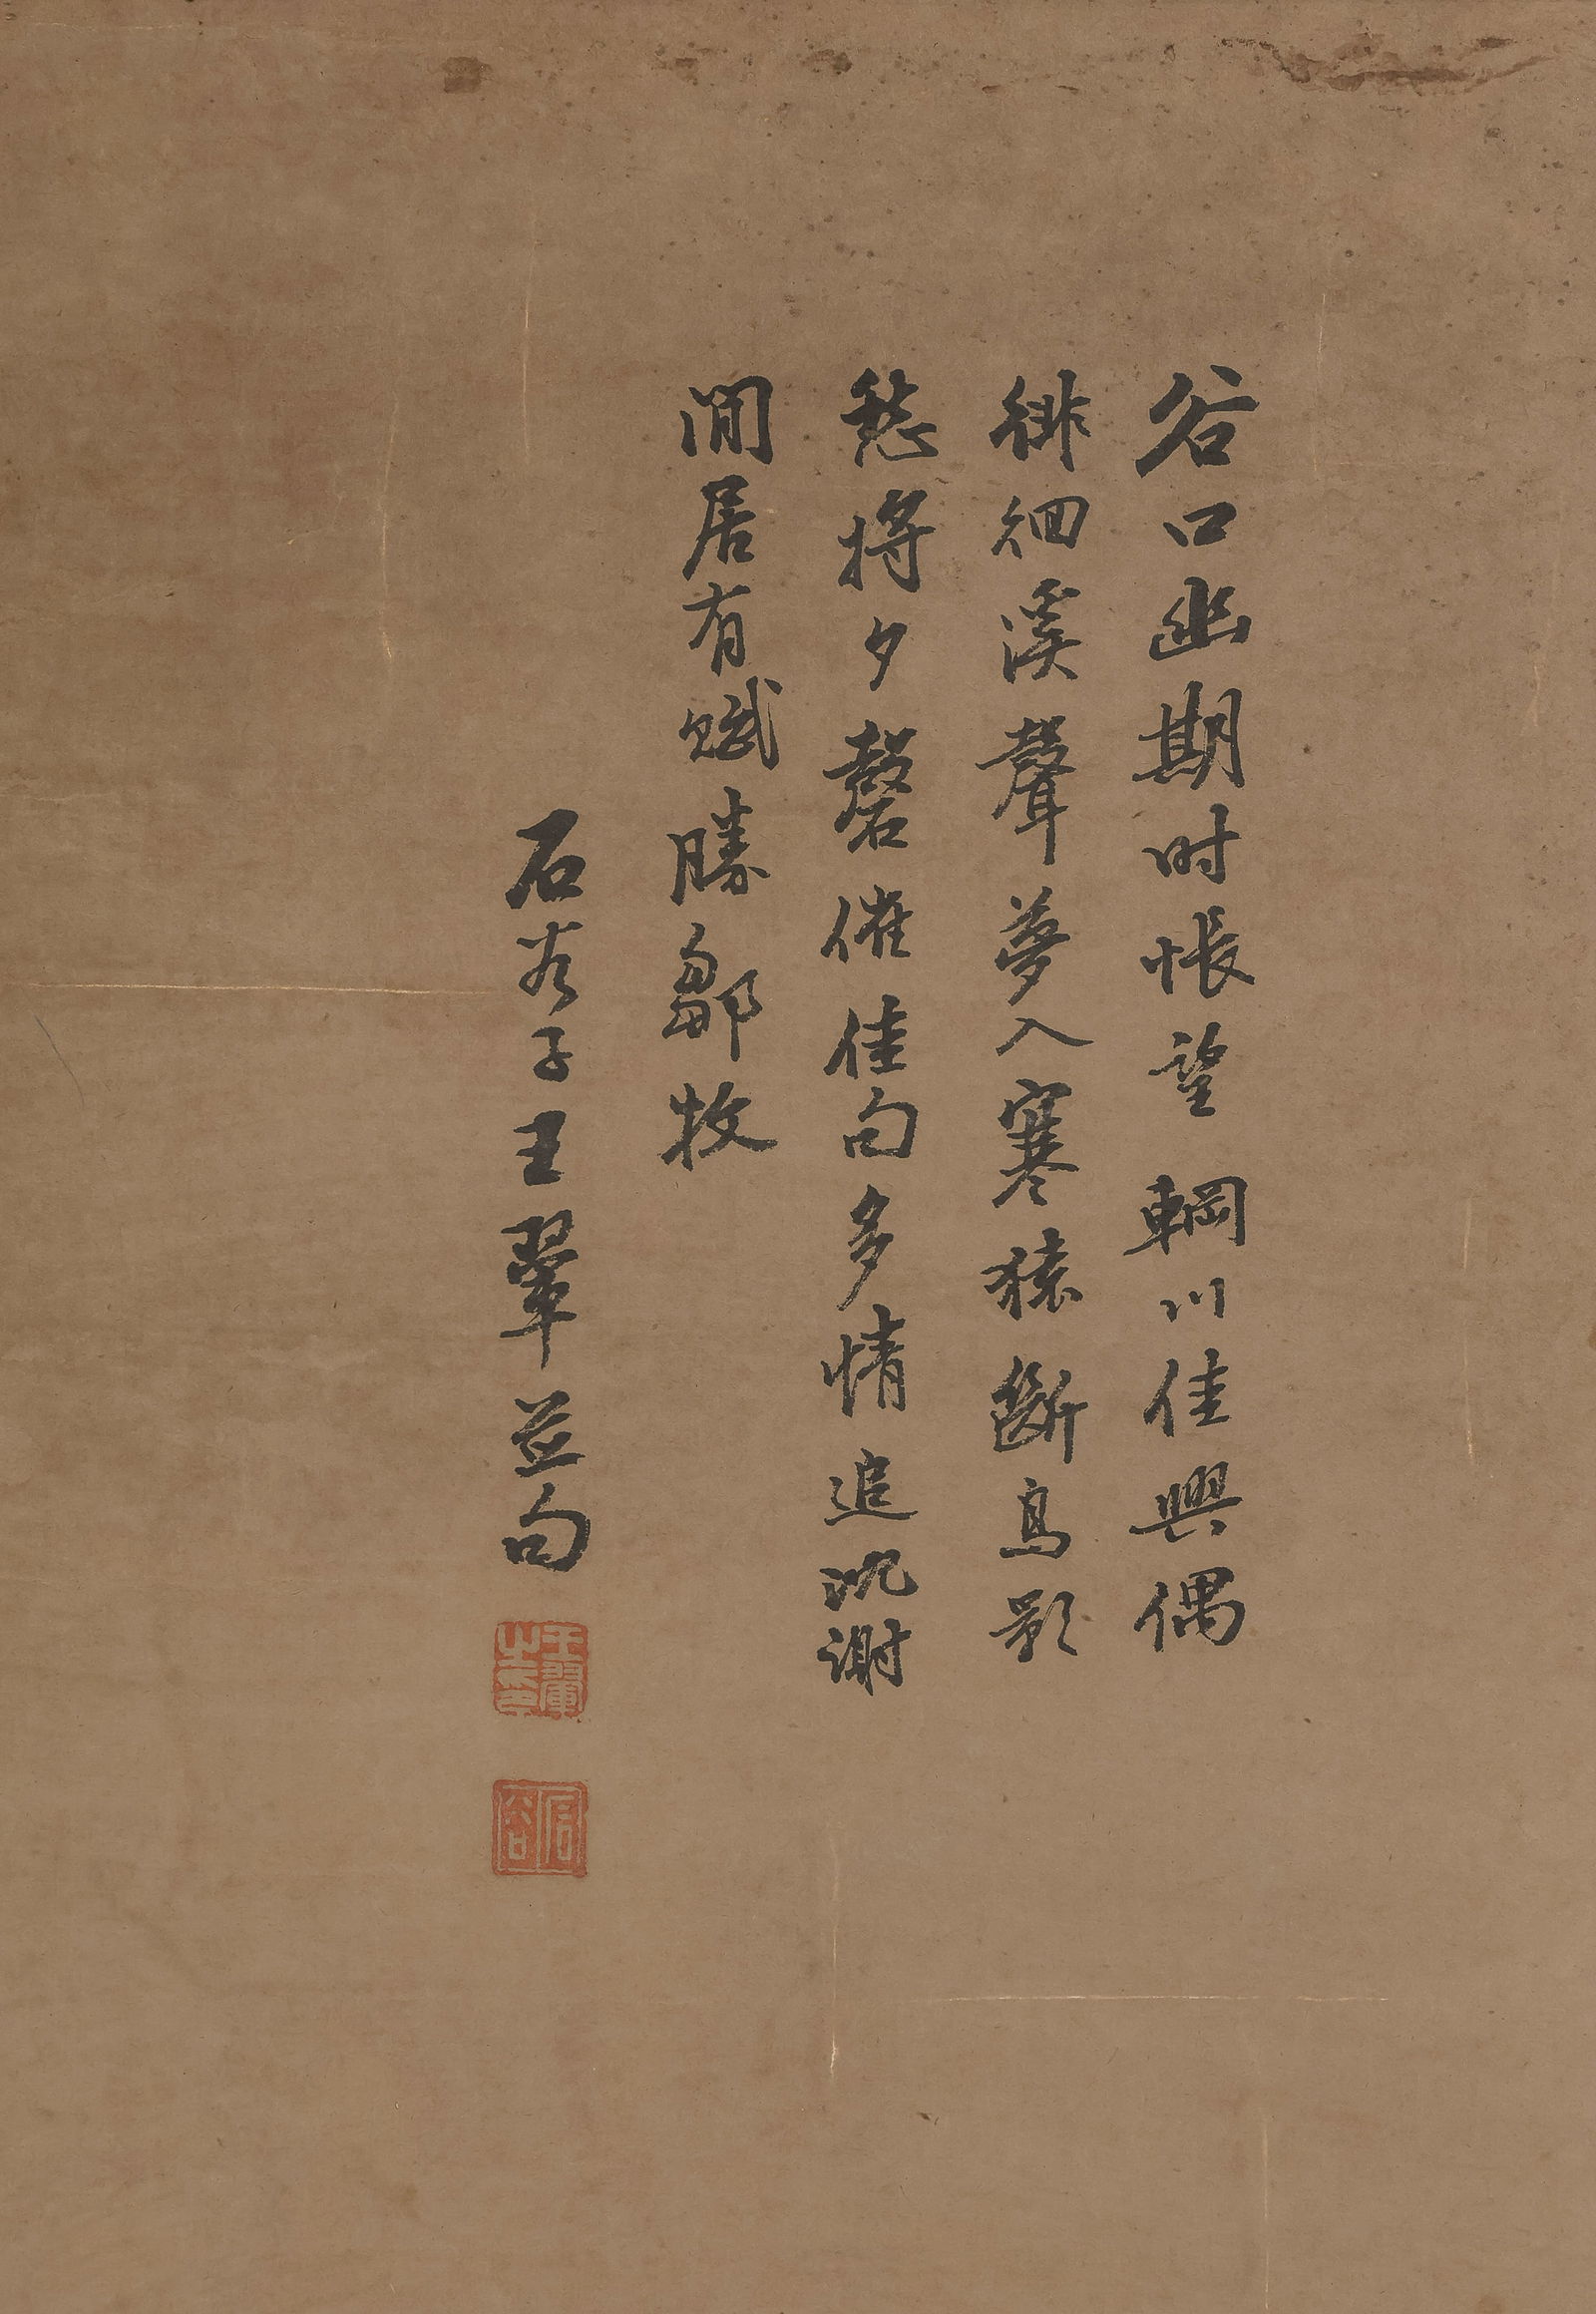 谷口幽期时悵望輞川佳興偶
徘徊溪聲夢入寒猿斷鳥影
愁將夕磬催佳句多情追沈謝
閒居有賦勝鄒枚
石谷子王翬並句
王翬之印
石谷